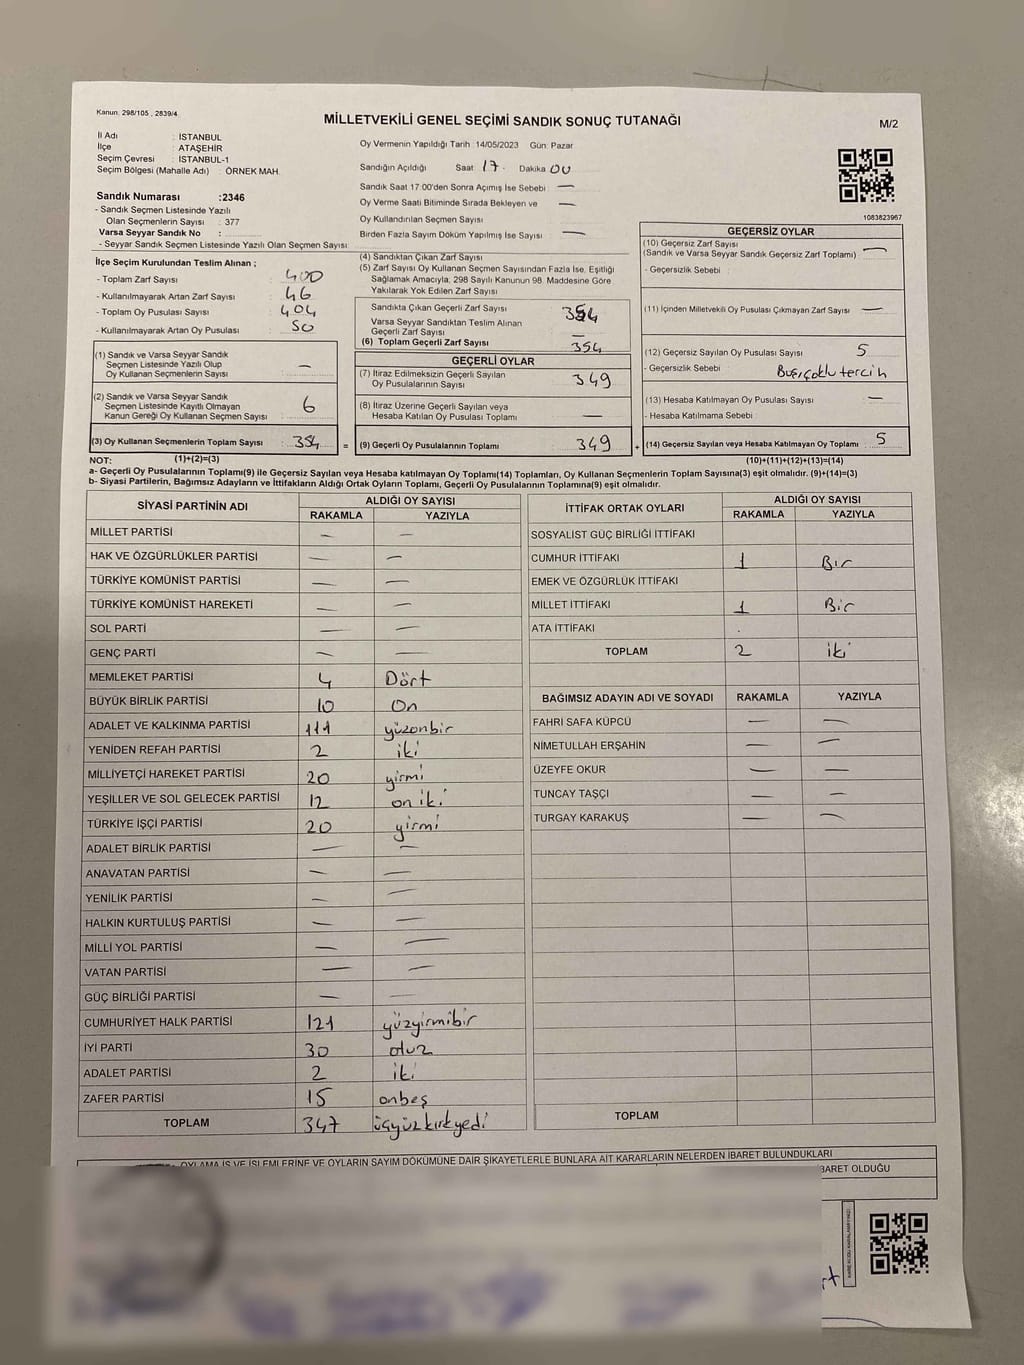 Kanun: 298/105 , 2839/4
MİLLETVEKİLİ GENEL SEÇİMİ SANDIK SONUÇ TUTANAĞI
M/2
İl Adı : İSTANBUL
İlçe : ATAŞEHİR
Seçim Çevresi : İSTANBUL-1
Seçim Bölgesi (Mahalle Adı) : ÖRNEK MAH.
Sandık Numarası :2346
- Sandık Seçmen Listesinde Yazılı
Olan Seçmenlerin Sayısı : 377
Varsa Seyyar Sandık No :
- Seyyar Sandık Seçmen Listesinde Yazılı Olan Seçmen Sayısı:
Oy Vermenin Yapıldığı Tarih : 14/05/2023 Gün: Pazar
Sandığın Açıldığı Saat 17 Dakika 00
Sandık Saat 17:00'den Sonra Açımış İse Sebebi —
Oy Verme Saati Bitiminde Sırada Bekleyen ve —
Oy Kullandırılan Seçmen Sayısı
Birden Fazla Sayım Döküm Yapılmış İse Sayısı —
1083823967
İlçe Seçim Kurulundan Teslim Alınan ;
- Toplam Zarf Sayısı : 400
- Kullanılmayarak Artan Zarf Sayısı : 46
- Toplam Oy Pusulası Sayısı : 404
- Kullanılmayarak Artan Oy Pusulası : 50
(1) Sandık ve Varsa Seyyar Sandık
Seçmen Listesinde Yazılı Olup
Oy Kullanan Seçmenlerin Sayısı : —
(2) Sandık ve Varsa Seyyar Sandık
Seçmen Listesinde Kayıtlı Olmayan
Kanun Gereği Oy Kullanan Seçmen Sayısı : 6
(3) Oy Kullanan Seçmenlerin Toplam Sayısı : 354 =
(4) Sandıktan Çıkan Zarf Sayısı
(5) Zarf Sayısı Oy Kullanan Seçmen Sayısından Fazla İse, Eşitliği
Sağlamak Amacıyla, 298 Sayılı Kanunun 98. Maddesine Göre
Yakılarak Yok Edilen Zarf Sayısı
Sandıkta Çıkan Geçerli Zarf Sayısı 354
Varsa Seyyar Sandıktan Teslim Alınan
Geçerli Zarf Sayısı —
(6) Toplam Geçerli Zarf Sayısı 354
GEÇERLİ OYLAR
(7) İtiraz Edilmeksizin Geçerli Sayılan
Oy Pusulalarının Sayısı 349
(8) İtiraz Üzerine Geçerli Sayılan veya
Hesaba Katılan Oy Pusulası Toplamı —
(9) Geçerli Oy Pusulalarının Toplamı 349 +
GEÇERSİZ OYLAR
(10) Geçersiz Zarf Sayısı —
(Sandık ve Varsa Seyyar Sandık Geçersiz Zarf Toplamı)
- Geçersizlik Sebebi :
(11) İçinden Milletvekili Oy Pusulası Çıkmayan Zarf Sayısı —
(12) Geçersiz Sayılan Oy Pusulası Sayısı 5
- Geçersizlik Sebebi : tercih
(13) Hesaba Katılmayan Oy Pusulası Sayısı —
- Hesaba Katılmama Sebebi :
(14) Geçersiz Sayılan veya Hesaba Katılmayan Oy Toplamı 5
NOT: (1)+(2)=(3) (10)+(11)+(12)+(13)=(14)
a- Geçerli Oy Pusulalarının Toplamı(9) ile Geçersiz Sayılan veya Hesaba katılmayan Oy Toplamı(14) Toplamları, Oy Kullanan Seçmenlerin Toplam Sayısına(3) eşit olmalıdır. (9)+(14)=(3)
b- Siyasi Partilerin, Bağımsız Adayların ve İttifakların Aldığı Ortak Oyların Toplamı, Geçerli Oy Pusulalarının Toplamına(9) eşit olmalıdır.
SİYASİ PARTİNİN ADI ALDIĞI OY SAYISI
RAKAMLA YAZIYLA
MİLLET PARTİSİ — —
HAK VE ÖZGÜRLÜKLER PARTİSİ — —
TÜRKİYE KOMÜNİST PARTİSİ — —
TÜRKİYE KOMÜNİST HAREKETİ — —
SOL PARTİ — —
GENÇ PARTİ — —
MEMLEKET PARTİSİ 4 Dört
BÜYÜK BİRLİK PARTİSİ 10 On
ADALET VE KALKINMA PARTİSİ 111 yüzonbir
YENİDEN REFAH PARTİSİ 2 iki
MİLLİYETÇİ HAREKET PARTİSİ 20 yirmi
YEŞİLLER VE SOL GELECEK PARTİSİ 12 on iki
TÜRKİYE İŞÇİ PARTİSİ 20 yirmi
ADALET BİRLİK PARTİSİ — —
ANAVATAN PARTİSİ — —
YENİLİK PARTİSİ — —
HALKIN KURTULUŞ PARTİSİ — —
MİLLİ YOL PARTİSİ — —
VATAN PARTİSİ — —
GÜÇ BİRLİĞİ PARTİSİ — —
CUMHURİYET HALK PARTİSİ 121 yüzyirmibir
İYİ PARTİ 30 otuz
ADALET PARTİSİ 2 iki
ZAFER PARTİSİ 15 onbeş
TOPLAM 347 üçyüzkırkyedi
İTTİFAK ORTAK OYLARI ALDIĞI OY SAYISI
RAKAMLA YAZIYLA
SOSYALİST GÜÇ BİRLİĞİ İTTİFAKI
CUMHUR İTTİFAKI 1 Bir
EMEK VE ÖZGÜRLÜK İTTİFAKI
MİLLET İTTİFAKI 1 Bir
ATA İTTİFAKI
TOPLAM 2 iki
BAĞIMSIZ ADAYIN ADI VE SOYADI RAKAMLA YAZIYLA
FAHRİ SAFA KÜPCÜ — —
NİMETULLAH ERŞAHİN — —
ÜZEYFE OKUR — —
TUNCAY TAŞÇI — —
TURGAY KARAKUŞ — —
TOPLAM
OYLAMA İŞ VE İŞLEMLERİNE VE OYLARIN SAYIM DÖKÜMÜNE DAİR ŞİKAYETLERLE BUNLARA AİT KARARLARIN NELERDEN İBARET BULUNDUKLARI
İBARET OLDUĞU